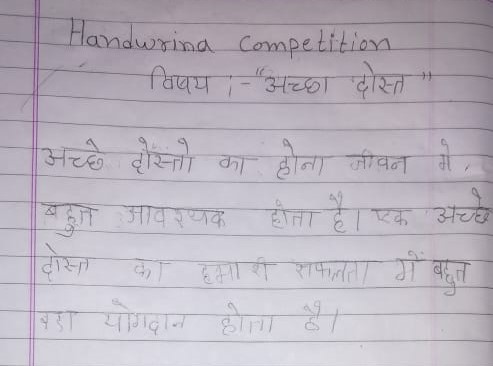 Handwrina Competition
विषय :- "अच्छा दोस्त"
अच्छे दोस्तो का होना जीवन मे
बहुत आवश्यक होता है। एक अच्छे
दोस्त का हमारी सफलता में बहुत
बडा योगदान होता है।